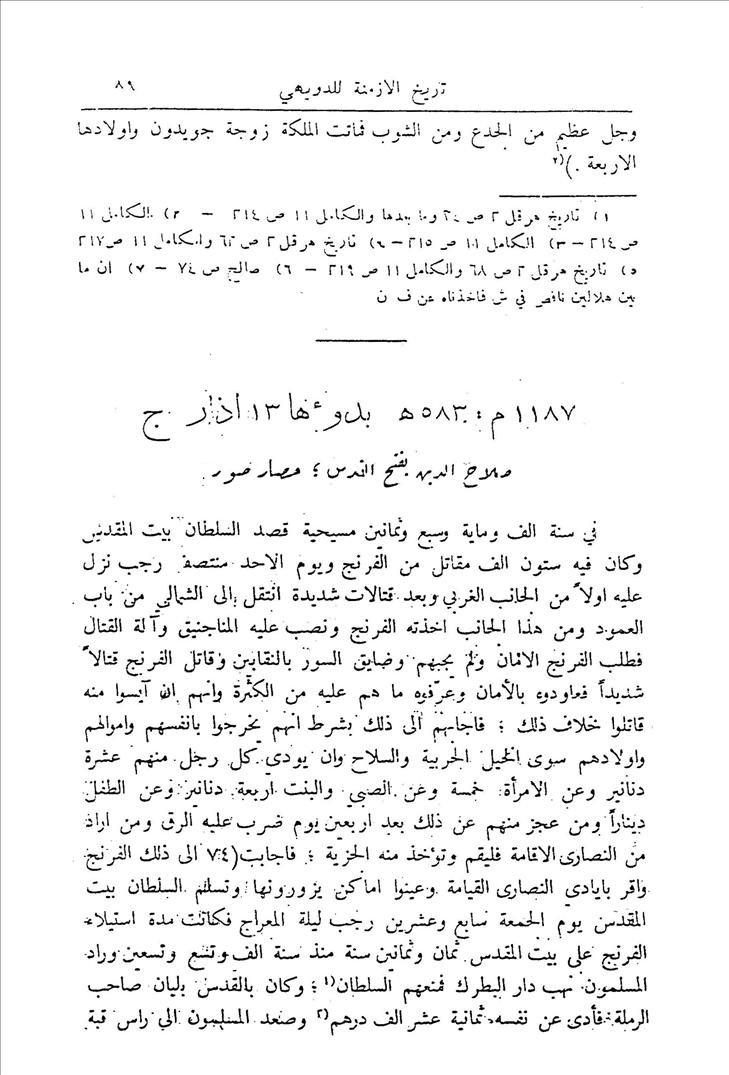 تريخ الازمنة للدويهي ٨٩
وجل عظيم من الجدع ومن الشوب فماتت الملكة زوجة جويدون واولادها
الاربعة .)(٢
١) تاريخ هرقل ٢ ص وما بعدها والكامل ١١ ص ٢١٤ – ٢) الكامل ١١
ص ٢١٤ – ٣) الكامل ١١ ص ٢١٥ – تاريخ هرقل ٢ ص والكامل ١١ ص ٢١٧
٥) تاريخ هرقل ٢ ص ٦٨ والكامل ١١ ص ٢١٩ – ٦) صالح ص ٧٤ – ٧) ان ما
بين هلالين ناقص في ش فاخذناه عن ف ن
١١٨٧ م : ٥٨٣ ه بدوءها ١٣ اذار ج
صلاح الدين يفتح القدس ؛ حصار صور
في سنة الف وماية وسبع وثمانين مسيحية قصد السلطان بيت المقدس
وكان فيه ستون الف مقاتل من الفرنج ويوم الاحد منتصف رجب نزل
عليه اولاً من الجانب الغربي وبعد قتالات شديدة انتقل الى الشمالي من باب
العمود ومن هذا الجانب اخذته الفرنج ونصب عليه المناجنيق وآلة القتال
فطلب الفرنج الامان ولم يجبهم وضايق السور بالنقابين وقاتل الفرنج قتالاً
شديداً فعاودوه بالأمان وعرّفوه ما هم عليه من الكثرة وانهم ان آيسوا منه
قاتلوا خلاف ذلك ؛ فاجابهم الى ذلك بشرط انهم يخرجوا بانفسهم واموالهم
واولادهم سوى الخيل الحربية والسلاح وان يودي كل رجل منهم عشرة
دنانير وعن الامرأة خمسة وعن الصبي والبنت اربعة دنانير وعن الطفل
ديناراً ومن عجز منهم عن ذلك بعد اربعين يوم ضرب عليه الرق ومن اراد
من النصارى الاقامة فليقم وتؤخذ منه الجزية ؛ فاجابت(٧٤ الى ذلك الفرنج
واقر بايادي النصارى القيامة وعينوا اماكن يزورونها وتسلم السلطان بيت
المقدس يوم الجمعة سابع وعشرين رجب ليلة المعراج فكانت مدة استيلاء
الفرنج على بيت المقدس ثمان وثمانين سنة منذ سنة الف وتسع وتسعين وراد
المسلمون نهب دار البطرك فمنعهم السلطان(١ ؛ وكان بالقدس بليان صاحب
الرملة فأدى عن نفسه ثمانية عشر الف درهم(٢ وصعد المسلمون الى راس قبة